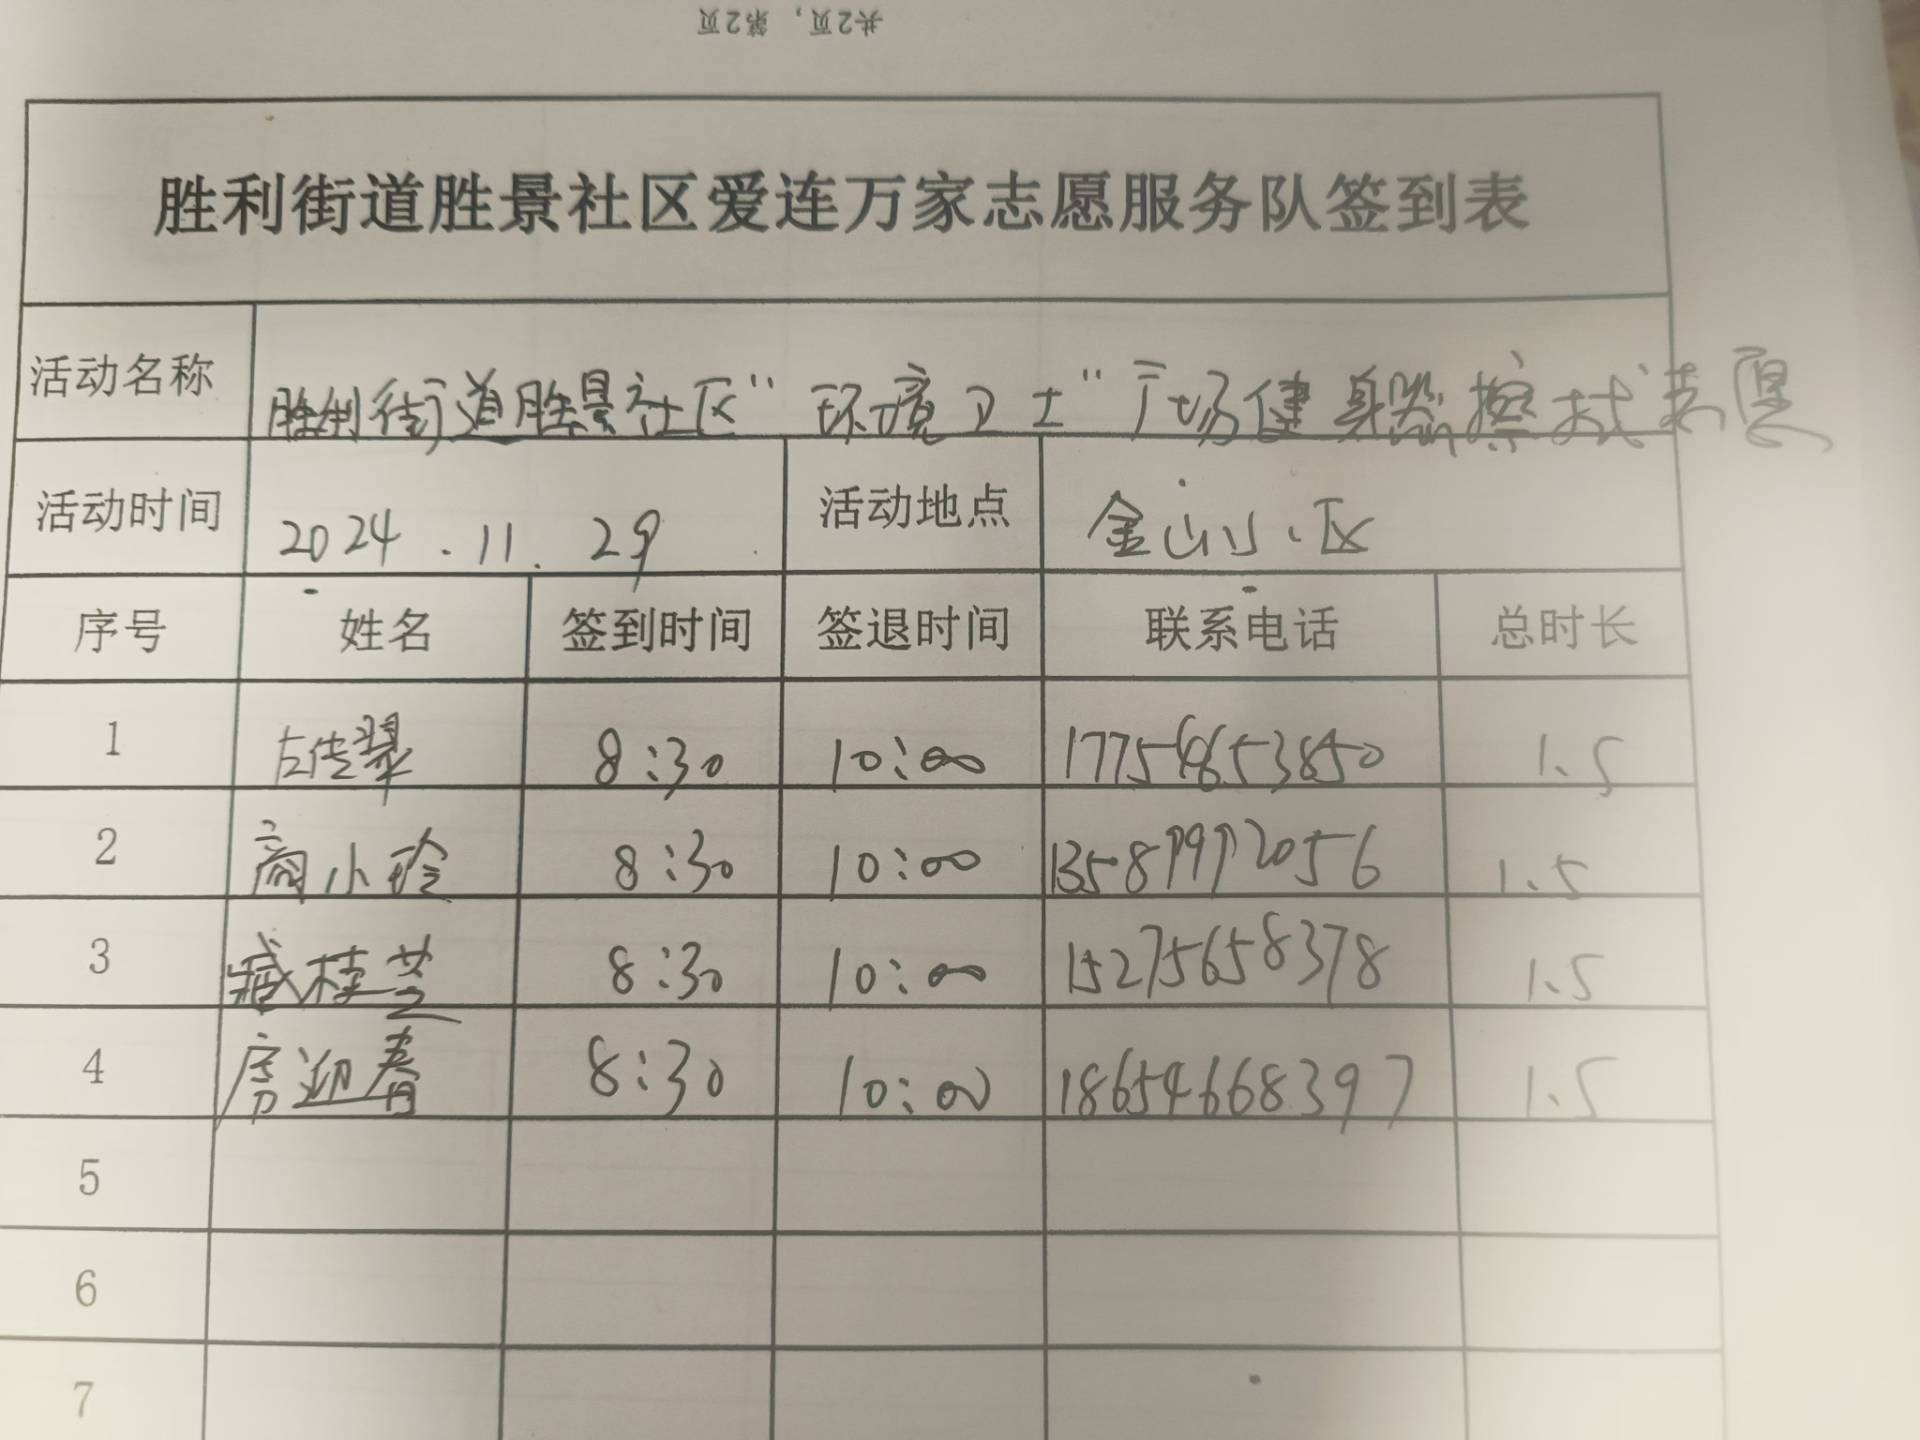 共2页，第2页
胜利街道胜景社区爱连万家志愿服务队签到表
活动名称 胜利街道胜景社区"环境卫士"广场健身器擦拭志愿
活动时间 2024.11.29 活动地点 金山小区
序号 姓名 签到时间 签退时间 联系电话 总时长
1 左传翠 8:30 10:00 1.5
2 小玲 8:30 10:00 1.5
3 臧桂芝 8:30 10:00 15275658378 1.5
4 房迎春 8:30 10:00 18654668397 1.5
5
6
7